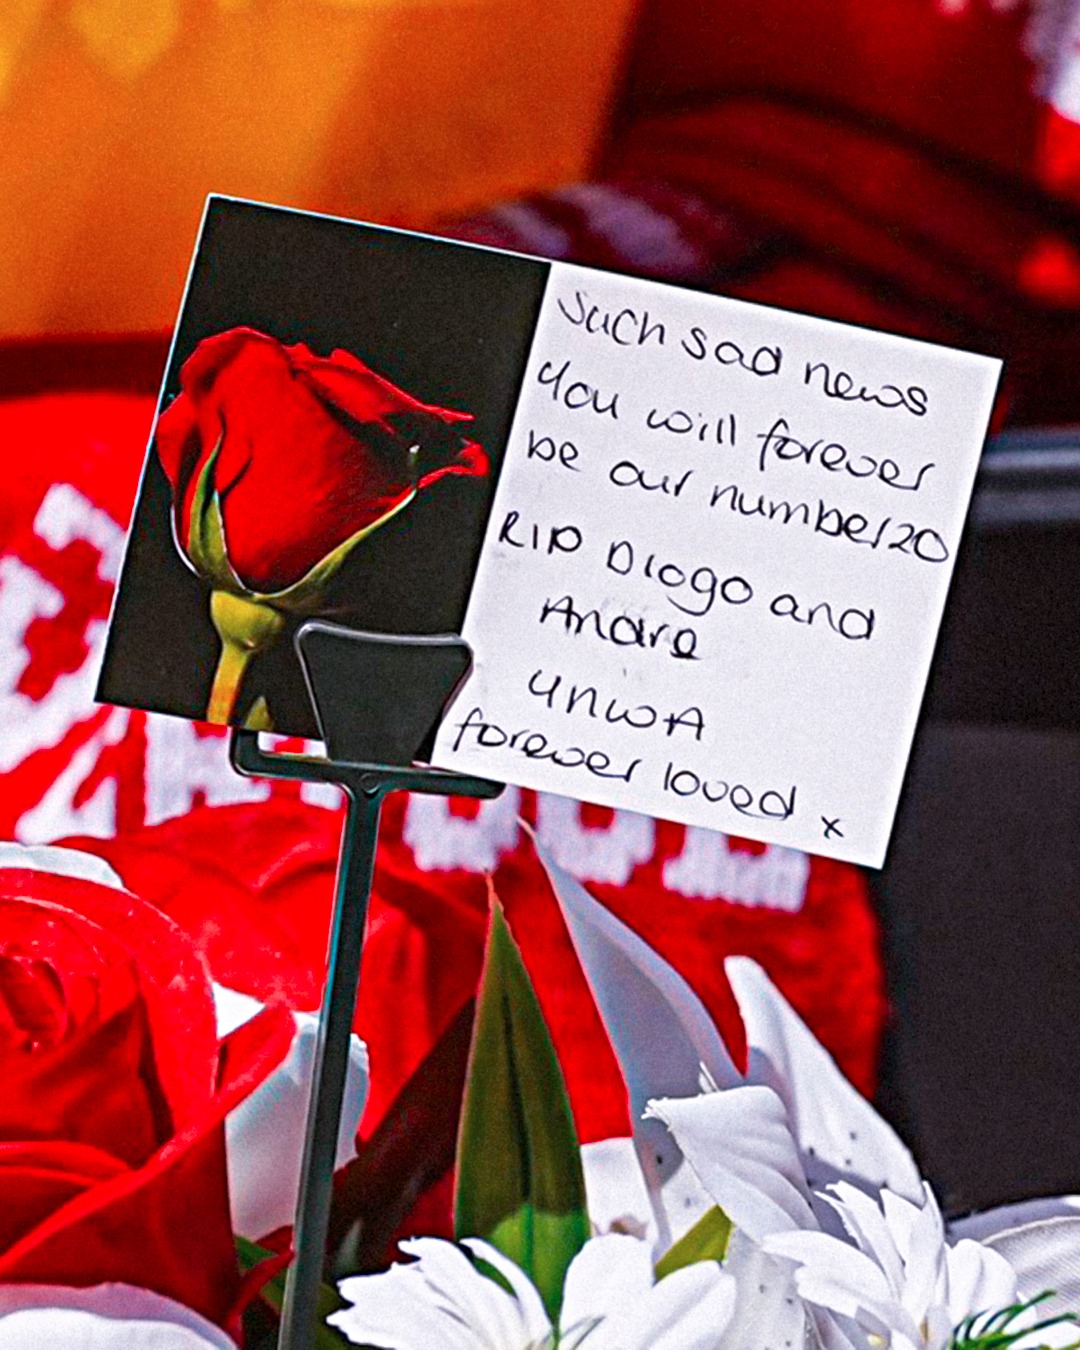 Such sad news
You will forever
be our number 20
RIP Diogo and
Andre
YNWA
forever loved x